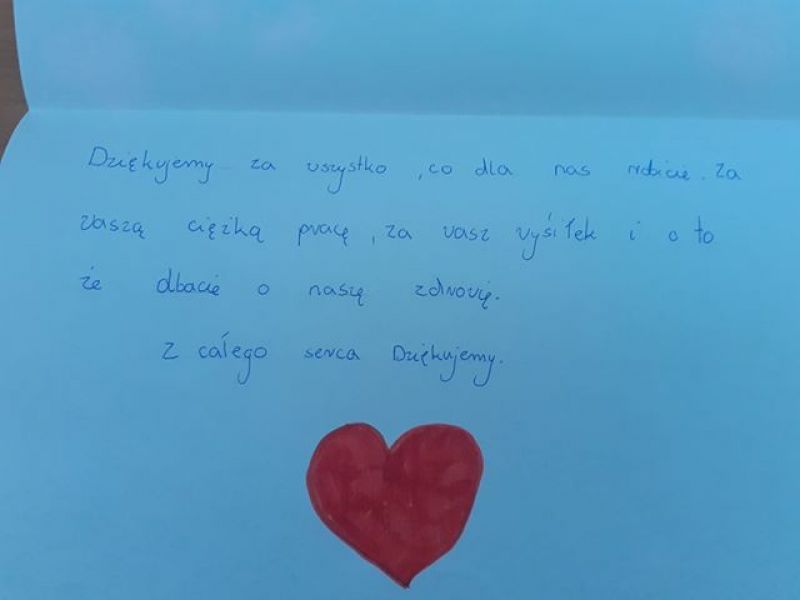 Dziękujemy za wszystko, co dla nas robicie. Za
waszą ciężką pracę, za wasz wyśiłek i o to
że dbacie o naszę zdrowię.
Z całego serca Dziękujemy.